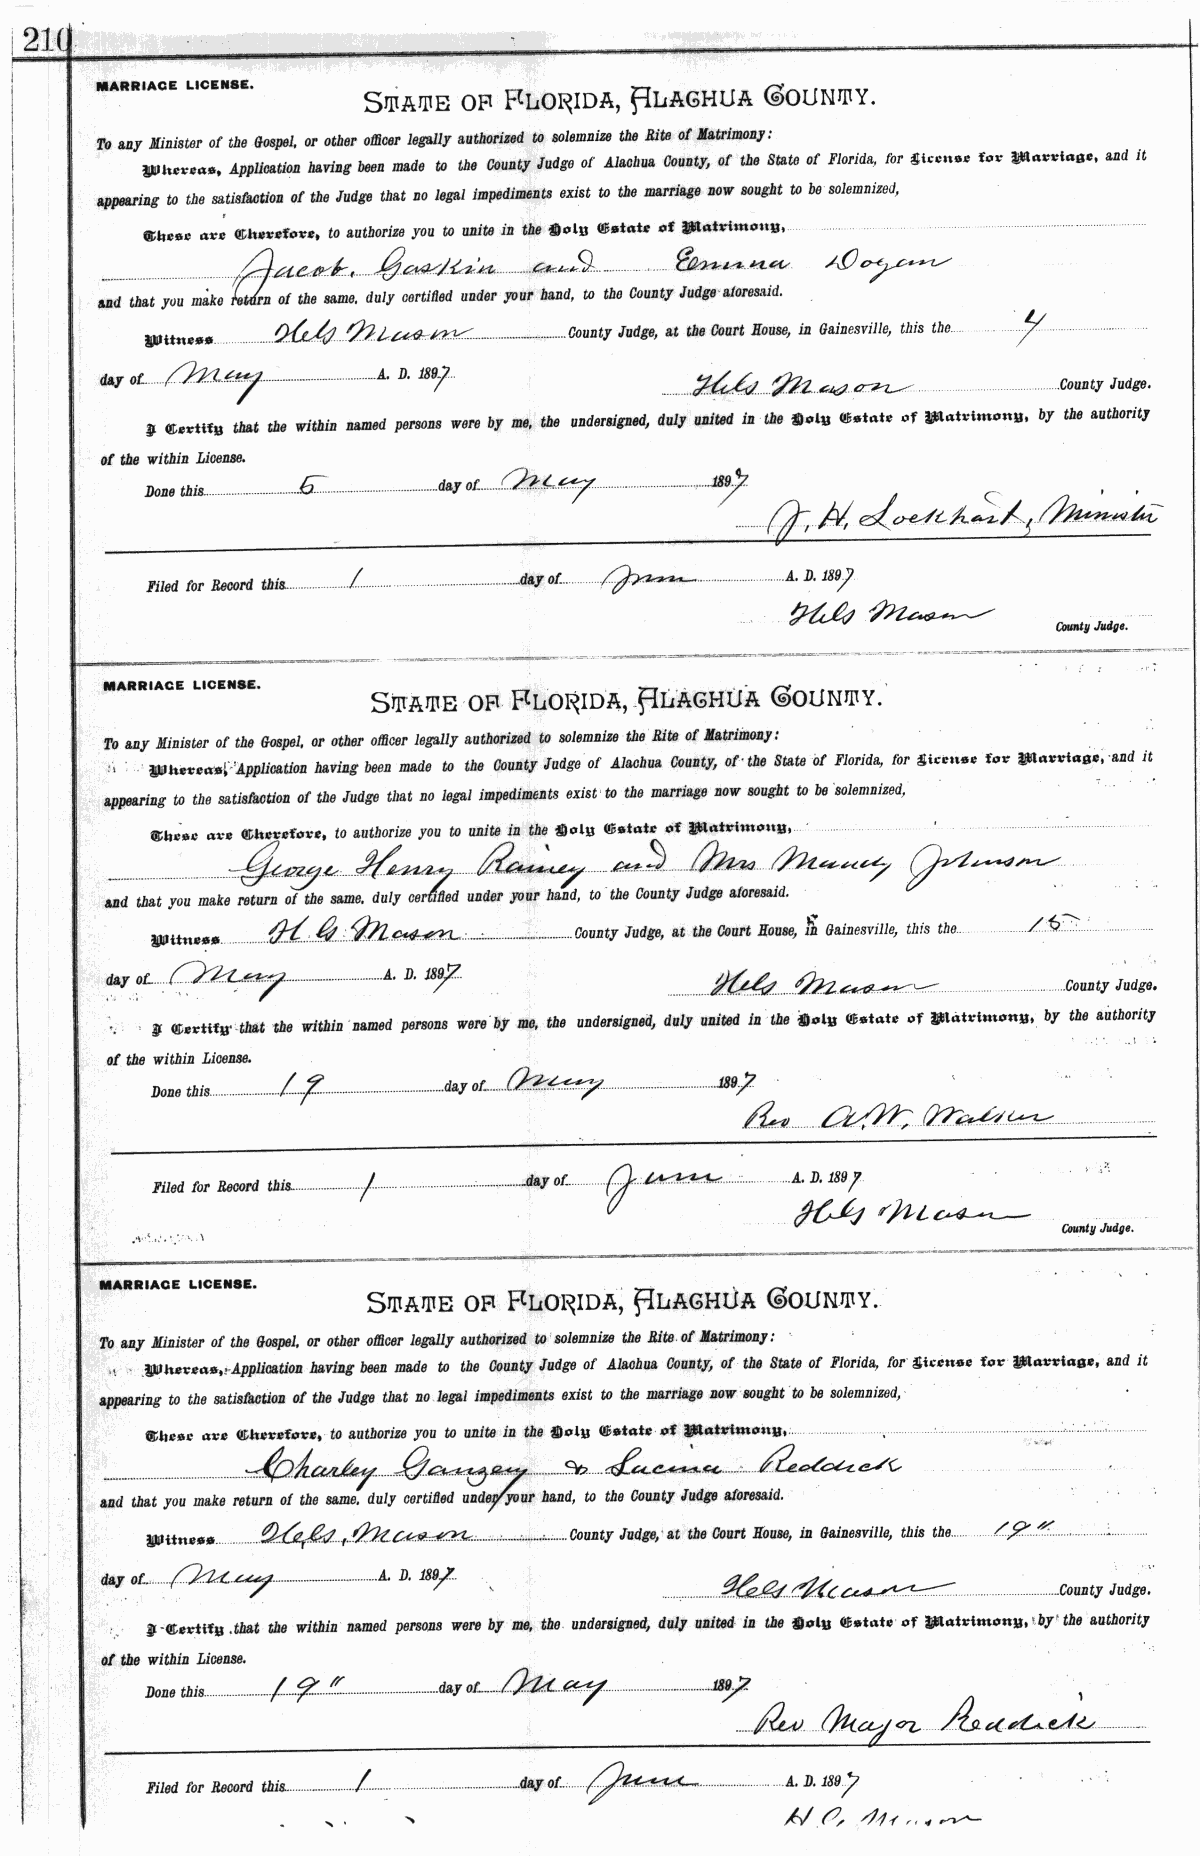 210
MARRIAGE LICENSE.
STATE OF FLORIDA, ALACHUA COUNTY.
To any Minister of the Gospel, or other officer legally authorized to solemnize the Rite of Matrimony:
Whereas, Application having been made to the County Judge of Alachua County, of the State of Florida, for License for Marriage, and it
appearing to the satisfaction of the Judge that no legal impediments exist to the marriage now sought to be solemnized,
These are Therefore, to authorize you to unite in the Holy Estate of Matrimony,
Jacob. Gaskin and Emma Dogan
and that you make return of the same, duly certified under your hand, to the County Judge aforesaid.
Witness Mason County Judge, at the Court House, in Gainesville, this the 4
day of May A. D. 1897
Mason County Judge.
I Certify that the within named persons were by me, the undersigned, duly united in the Holy Estate of Matrimony, by the authority
of the within License.
Done this 5 day of May 1897
J. H. Lockhart, Minister
Filed for Record this 1 day of June A. D. 1897
Mason
County Judge.
MARRIAGE LICENSE.
STATE OF FLORIDA, ALACHUA COUNTY.
To any Minister of the Gospel, or other officer legally authorized to solemnize the Rite of Matrimony:
Whereas, Application having been made to the County Judge of Alachua County, of the State of Florida, for License for Marriage, and it
appearing to the satisfaction of the Judge that no legal impediments exist to the marriage now sought to be solemnized,
These are Therefore, to authorize you to unite in the Holy Estate of Matrimony,
George Henry Rainey and Mrs Mandy Johnson
and that you make return of the same, duly certified under your hand, to the County Judge aforesaid.
Witness H G Mason County Judge, at the Court House, in Gainesville, this the 15
day of May A. D. 1897
Mason County Judge.
I Certify that the within named persons were by me, the undersigned, duly united in the Holy Estate of Matrimony, by the authority
of the within License.
Done this 19 day of May 1897
Rev A. W. Walker
Filed for Record this 1 day of June A. D. 1897
Mason
County Judge.
MARRIAGE LICENSE.
STATE OF FLORIDA, ALACHUA COUNTY.
To any Minister of the Gospel, or other officer legally authorized to solemnize the Rite of Matrimony:
Whereas, Application having been made to the County Judge of Alachua County, of the State of Florida, for License for Marriage, and it
appearing to the satisfaction of the Judge that no legal impediments exist to the marriage now sought to be solemnized,
These are Therefore, to authorize you to unite in the Holy Estate of Matrimony,
Charley Ganzey & Lucina Reddick
and that you make return of the same, duly certified under your hand, to the County Judge aforesaid.
Witness Mason County Judge, at the Court House, in Gainesville, this the 19"
day of May A. D. 1897
Mason County Judge.
I Certify that the within named persons were by me, the undersigned, duly united in the Holy Estate of Matrimony, by the authority
of the within License.
Done this 19" day of May 1897
Rev Major Reddick
Filed for Record this 1 day of June A. D. 1897
Mason